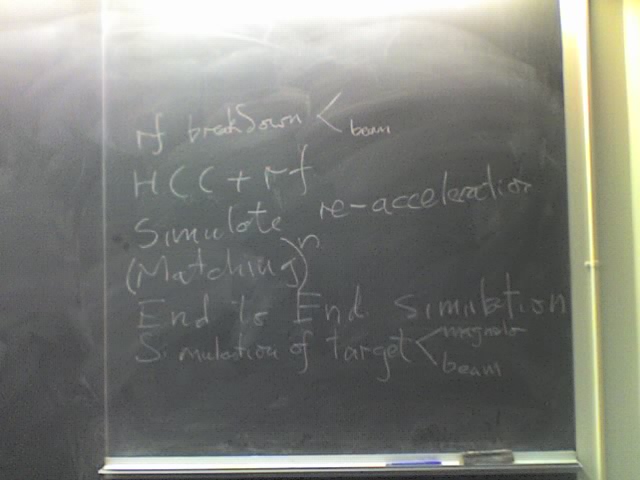 rf breakdown < beam
HCC + rf
Simulate re-acceleration
(Matching)^n
End to End simulation
Simulation of target <
beam